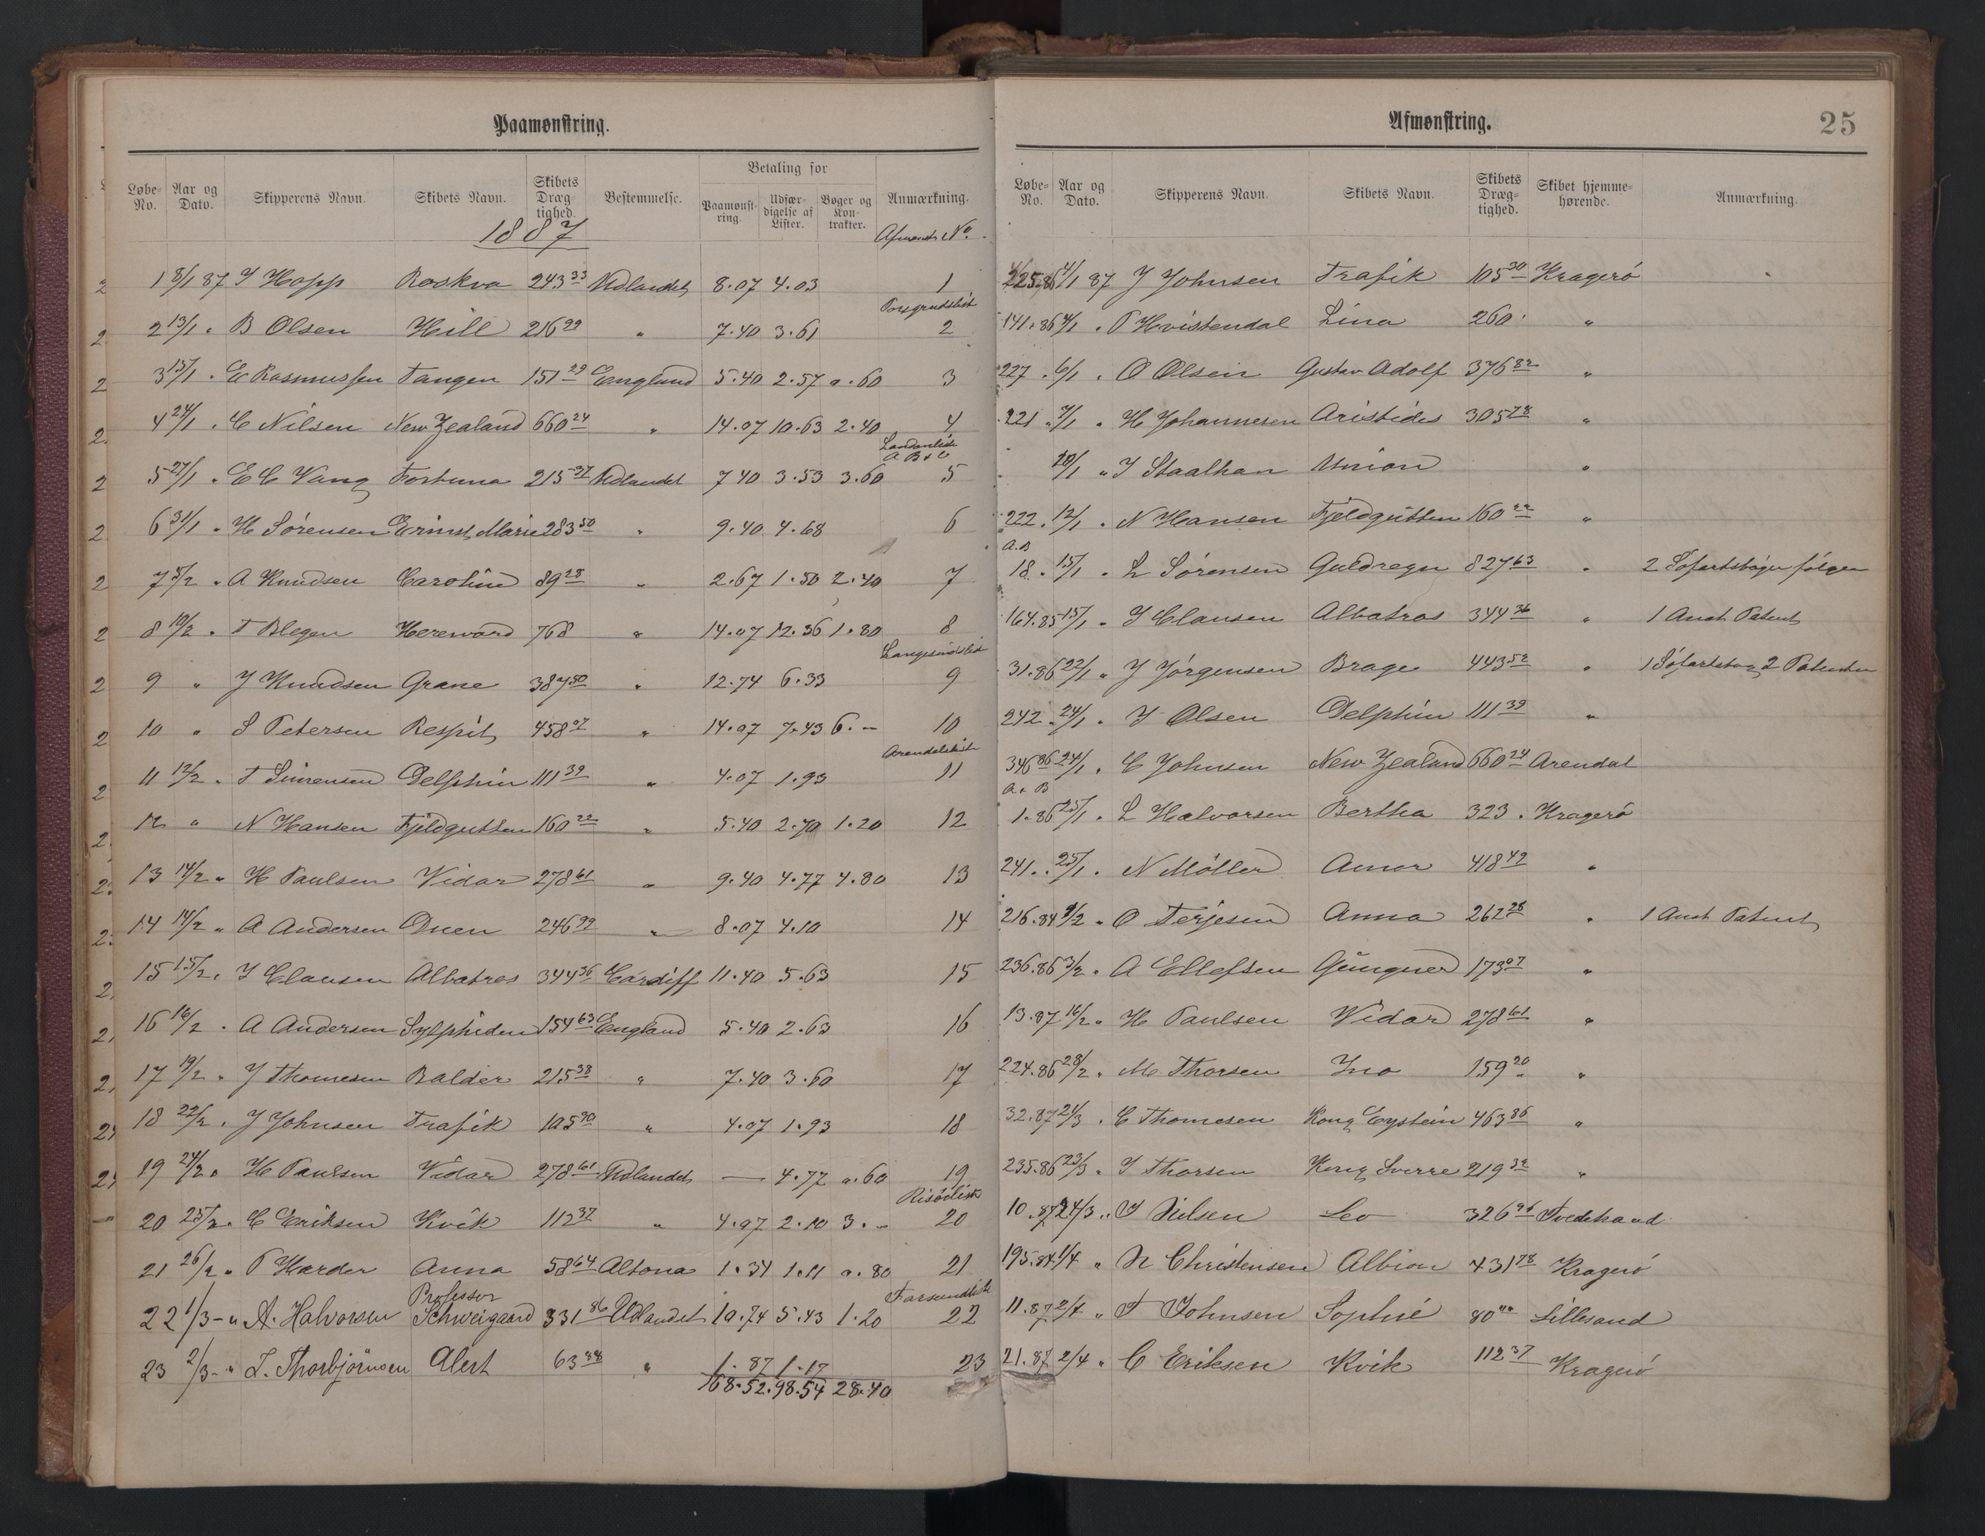 Paamønstring.
Løbe-No. Aar og Dato. Skipperens Navn. Skibets Navn. Skibets Dræg-tighed. Bestemmelse. Betaling for Paamønst-ring. Udfær-digelse af Lister. Bøger og Kon-trakter. Anmærkning.
1887 Afmønst. No.
1 8/1 87 J Hopp Roskva 243 33 Udlandet 8.07 4.03 1
Porsgrundsliste
2 13/1 " B Olsen Hill 216 99 " 7.40 3.61 2
3 15/1 " E Rasmussen Tangen 151 29 England 5.40 2.57 0.60 3
4 24/1 " C Nilsen New Zealand 660 24 " 14.07 10.63 2.40 4
A B & C
5 27/1 " E C Vang Fortuna 215 37 Udlandet 7.40 3.53 3.60 5
6 31/1 " H Sørensen Ernst Marie 283 50 " 9.40 4.68 6
7 5/2 " A Knudsen Carolin 89 28 " 2.67 1.50 2.40 7
8 10/2 " T Blegen Hereward 768 " 14.07 12.36 1.80 8
Langesundsliste
9 " J Knudsen Grane 387 50 " 12.74 6.33 9
10 " S Petersen Respit 458 07 " 14.07 7.43 6.- 10
Arendalsliste
11 12/2 " T Sørensen Delphin 111 39 " 4.07 1.93 11
12 " N Hansen Fjeldgutten 160 22 " 5.40 2.70 1.20 12
13 14/2 " H Paulsen Vidar 278 61 " 9.40 4.77 4.80 13
14 14/2 " A Andersen Duen 246 99 " 8.07 4.10 14
15 15/2 " J Clausen Albatros 344 36 Cardiff 11.40 5.63 15
16 16/2 " A Andersen Sylphiden 154 63 England 5.40 2.63 16
17 19/2 " J Thomesen Balder 215 38 " 7.40 3.60 17
18 22/2 " J Johnsen Trafik 105 30 " 4.07 1.93 18
19 24/2 " H Paulsen Vidar 278 61 Udlandet — 4.77 0.60 19
Risørliste
20 25/2 " C Eriksen Kvik 112 37 " 4.07 2.10 3.- 20
21 26/2 " P Harder Anna 58 64 Altona 1.34 1.11 0.80 21
Professor Farsundliste
22 1/3 - " A. Halvorsen Schweigaard 331 86 Udlandet 10.74 5.43 1.20 22
23 2/3 - " L. Thorbjörnsen Alert 63 88 " 1.87 1.17 23
168.52 98.54 28.40
Afmønstring.
25
Løbe-No. Aar og Dato. Skipperens Navn. Skibets Navn. Skibets Dræg-tighed. Skibet hjemme-hørende. Anmærkning.
225.86 4/1 87 J Johnsen Trafik 105 30 Kragerö
141.86 4/1 " P Hvistendal Lina 260 "
227 . 6/1 " O Olsen Gustav Adolf 376 82 "
221 . 7/1 " H Johannesen Aristides 305 78 "
10/1 " J Staalhan Union "
222 . 12/1 " N Hansen Fjeldgutten 160 22 "
A.B
18 . 15/1 " L Sørensen Guldregn 827 63 " 2 Søfartsbøger følger
164.85 15/1 " J Clausen Albatros 344 36 " 1 Aust. Patent
31.86 22/1 " J Jörgensen Brage 443 52 " 1 Søfartsbog 2 Patenter
242 . 24/1 " J Olsen Delphin 111 39 "
346 86 24/1 " C Johnsen New Zealand 660 24 Arendal
A. B
1.86 25/1 " L Halvorsen Bertha 323 . Kragerö
241 . 25/1 " N Möller Amor 418 49 "
216.84 1/2 " O Terjesen Anna 262 28 " 1 Aust. Patent
236.86 3/2 " A Ellefsen Gungner 173 07 "
13.87 16/2 " H Paulsen Vidar 278 61 "
224.86 28/2 " M Thorsen Ino 159 20 "
32.87 21/3 " C Thomesen Kong Eystein 463 86 "
235.86 23/3 " J Thorsen Kong Sverre 219 32 "
10.87 24/3 " T Nilsen Leo 326 96 Tvedestrand
195.84 1/4 " N Christensen Albion 431 78 Kragerö
11.87 2/4 " T Johnsen Sophie 80 00 Lillesand
21.87 2/4 " C Eriksen Kvik 112 37 Kragerö